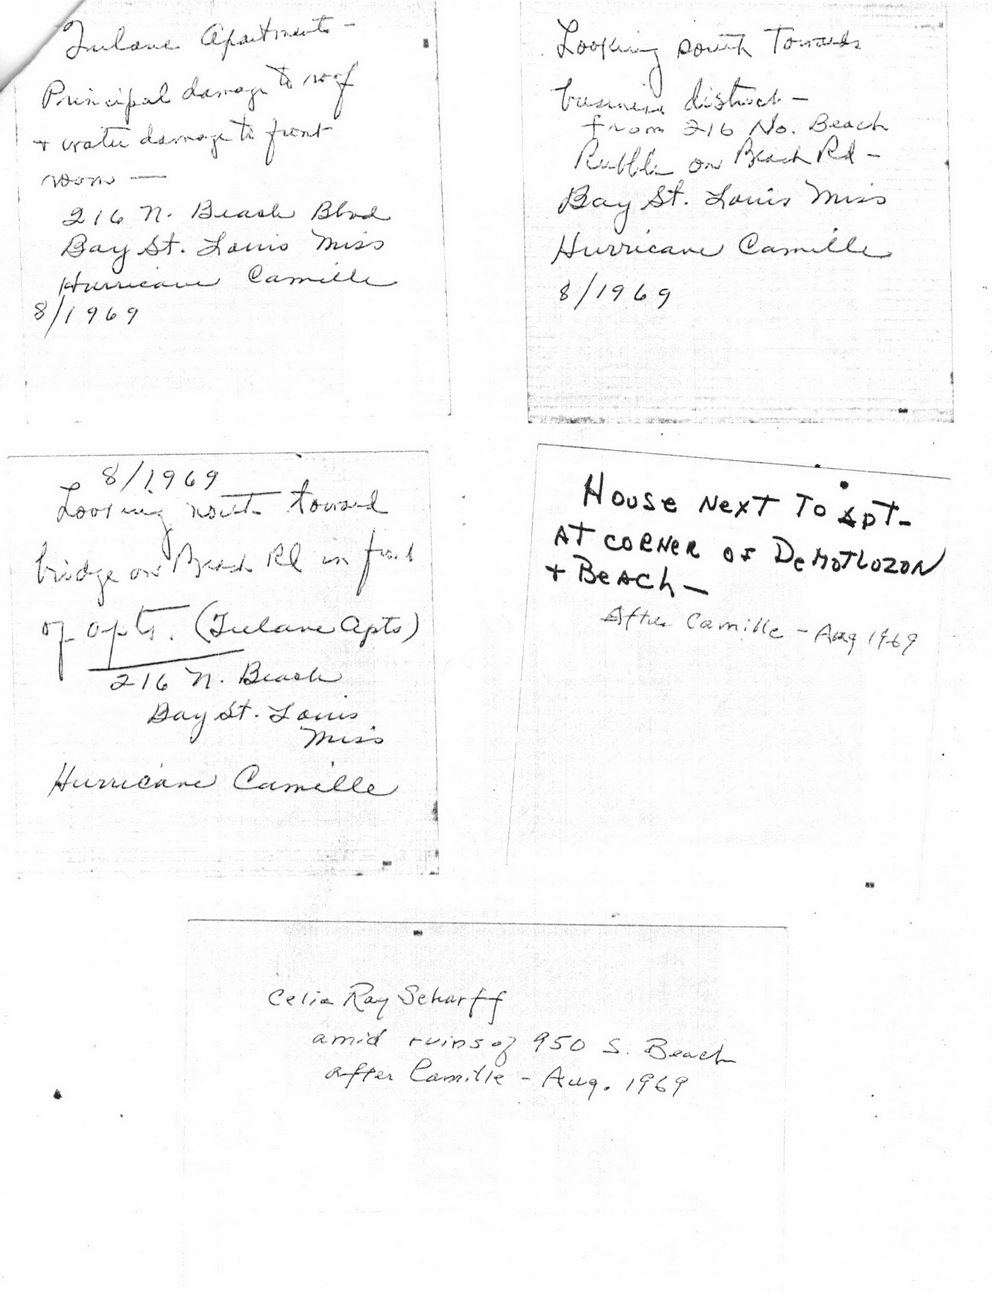 Tulane Apartments -
Principal damage to roof
+ water damage to front
room —
216 N. Beach Blvd
Bay St. Louis Miss
Hurricane Camille
8/1969
Looking south Towards
business district -
from 216 No. Beach
Rubble on Beach Rd -
Bay St. Louis Miss
Hurricane Camille
8/1969
8/1969
Looking north toward
bridge on Beach Rd in front
of apts. (Tulane Apts)
216 N. Beach
Bay St. Louis
Miss
Hurricane Camille
HOUSE NEXT TO APT-
AT CORNER OF DeMOTLUZON
+ BEACH —
After Camille - Aug 1969
Celia Ray Scharff
amid ruins of 950 S. Beach
after Camille - Aug. 1969